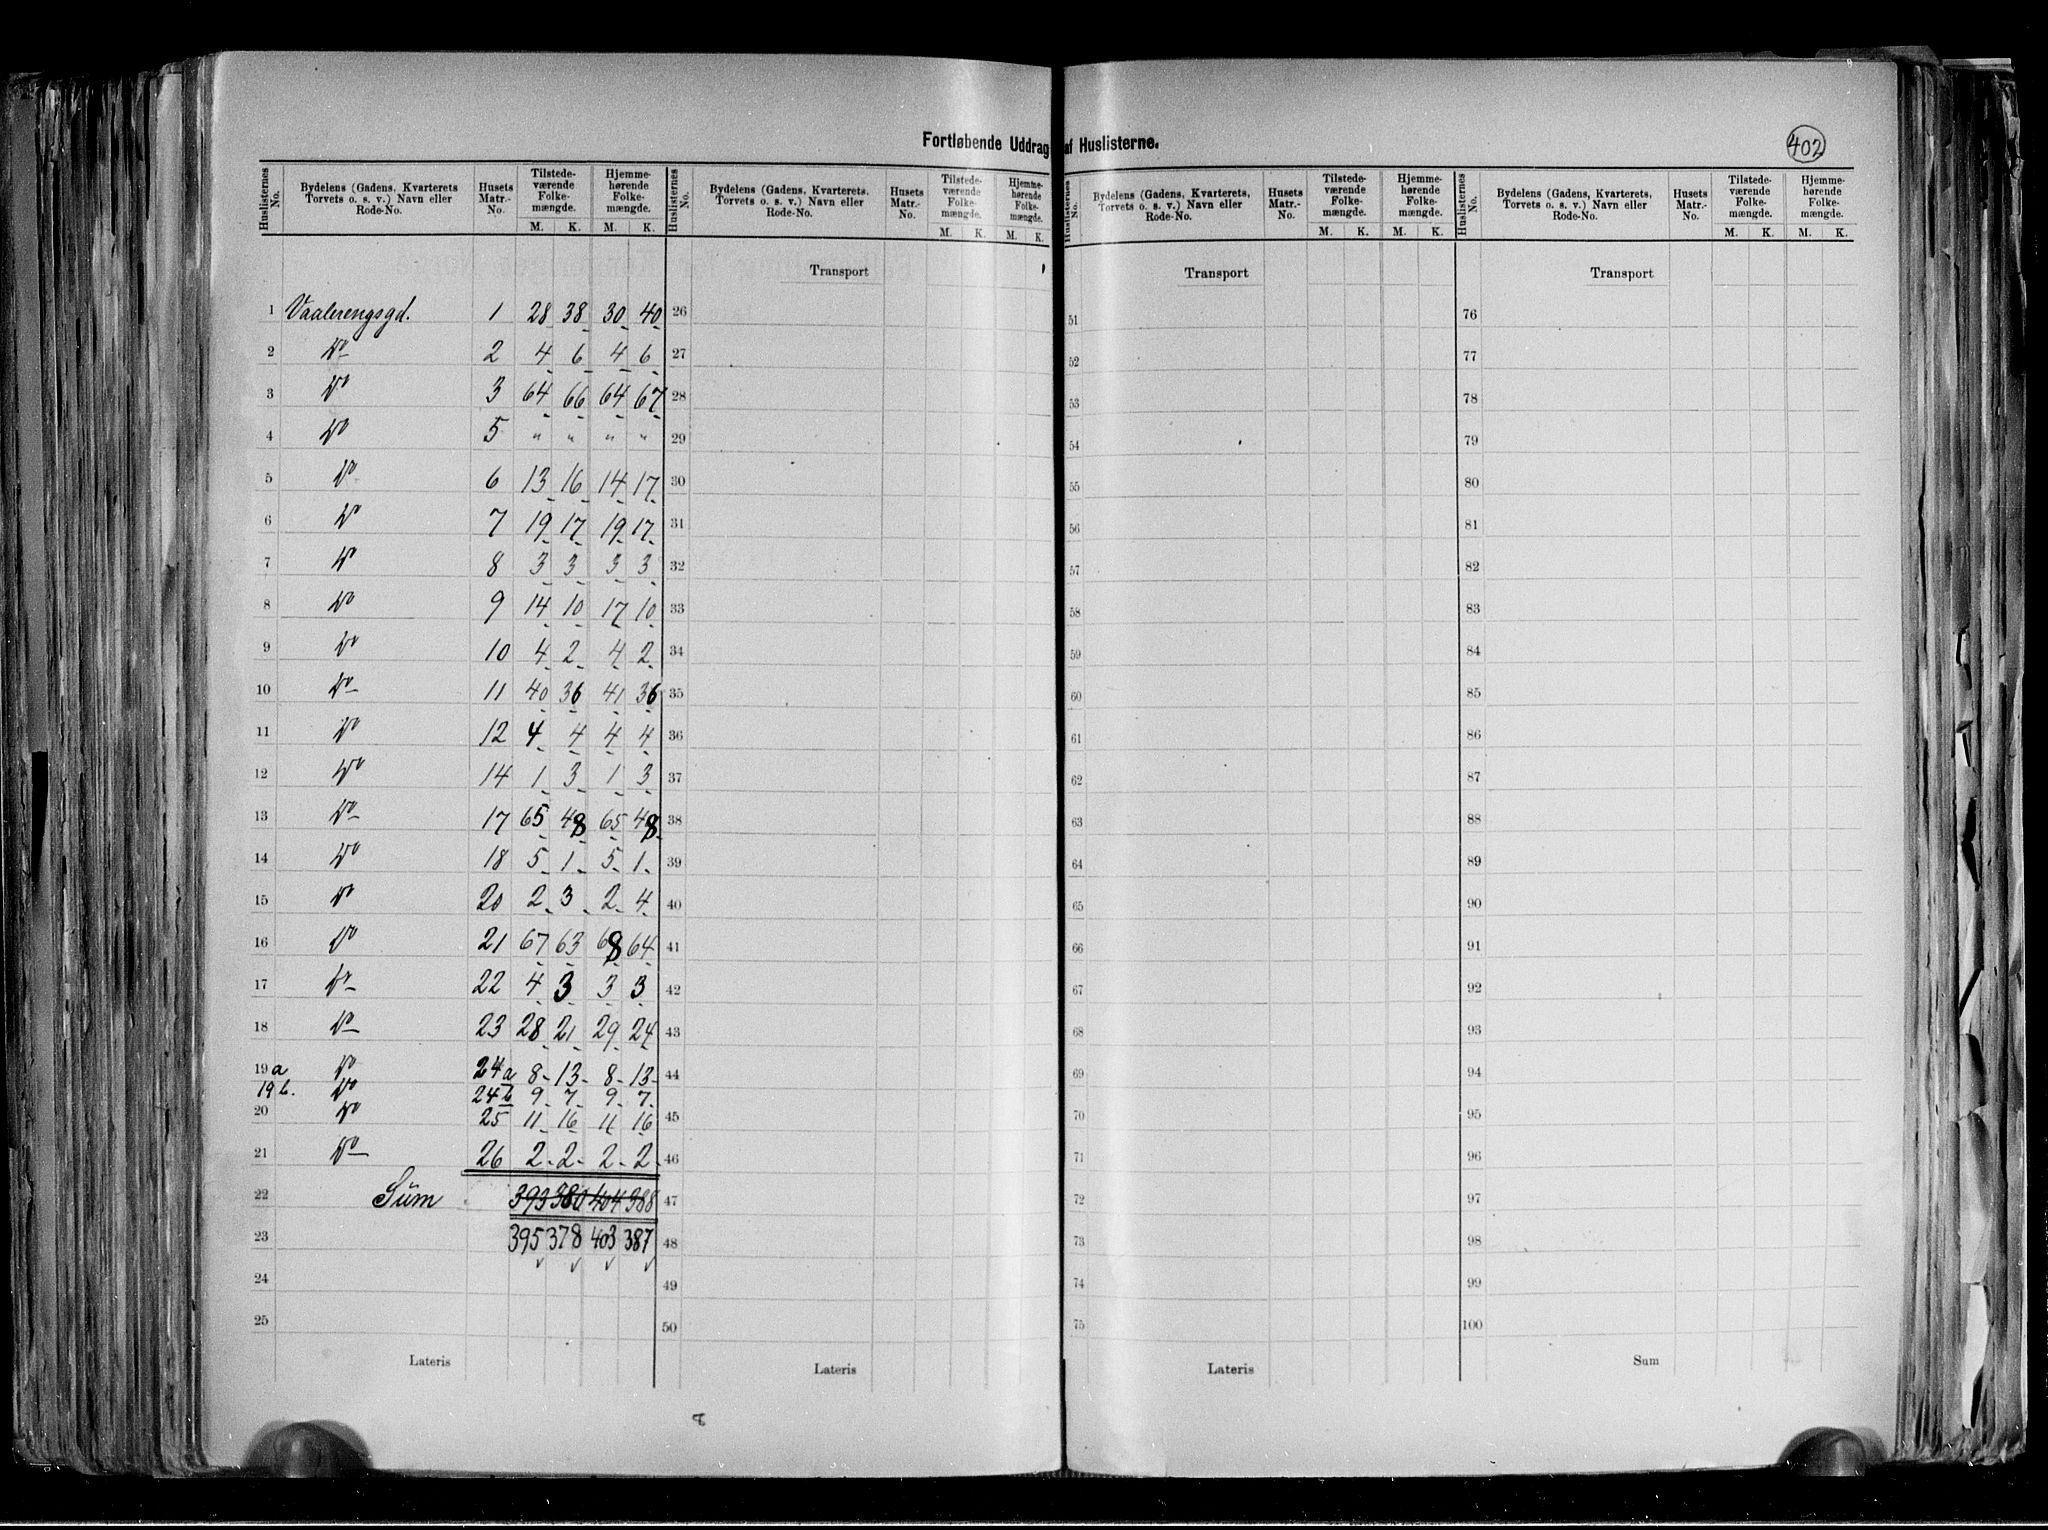 Fortløbende Uddrag af Huslisterne.
402
Huslisternes No. Bydelens (Gadens, Kvarterets Torvets o. s. v.) Navn eller Rode-No. Husets Matr.-No. Tilstede-værende Folke-mængde. M. K. Hjemme-hørende Folke-mængde. M. K.
Huslisternes No. Bydelens (Gadens, Kvarterets, Torvets o. s. v.) Navn eller Rode-No. Husets Matr.-No. Tilstede-værende Folke-mængde. M. K. Hjemme-hørende Folke-mængde. M. K.
Huslisternes No. Bydelens (Gadens, Kvarterets, Torvets o. s. v.) Navn eller Rode-No. Husets Matr.-No. Tilstede-værende Folke-mængde. M. K. Hjemme-hørende Folke-mængde. M. K.
Huslisternes No. Bydelens (Gadens, Kvarterets, Torvets o. s. v.) Navn eller Rode-No. Husets Matr.-No. Tilstede-værende Folke-mængde. M. K. Hjemme-hørende Folke-mængde. M. K.
Transport Transport Transport
1 Vaalerengsgd. 1 28 38 30 40 26 51 76
2 Do 2 4 6 4 6 27 52 77
3 Do 3 64 66 64 67 28 53 78
4 Do 5 " " " " 29 54 79
5 Do 6 13 16 14 17 30 55 80
6 Do 7 19 17 19 17 31 56 81
7 Do 8 3 3 3 3 32 57 82
8 Do 9 14 10 17 10 33 58 83
9 Do 10 4 2 4 2 34 59 84
10 Do 11 40 36 41 36 35 60 85
11 Do 12 4 4 4 4 36 61 86
12 Do 14 1 3 1 3 37 62 87
13 Do 17 65 48 65 48 38 63 88
14 Do 18 5 1 5 1 39 64 89
15 Do 20 2 3 2 4 40 65 90
16 Do 21 67 63 68 64 41 66 91
17 Do 22 4 3 3 3 42 67 92
18 Do 23 28 21 29 24 43 68 93
19 a Do 24 a 8 13 8 13 44 69 94
19 b. Do 24 b 9 7 9 7
20 Do 25 11 16 11 16 45 70 95
21 Do 26 2 2 2 2 46 71 96
22 Sum 393 380 404 388 47 72 97
23 395 378 403 387 48 73 98
24 49 74 99
25 50 75 100
Lateris Lateris Lateris Sum
8